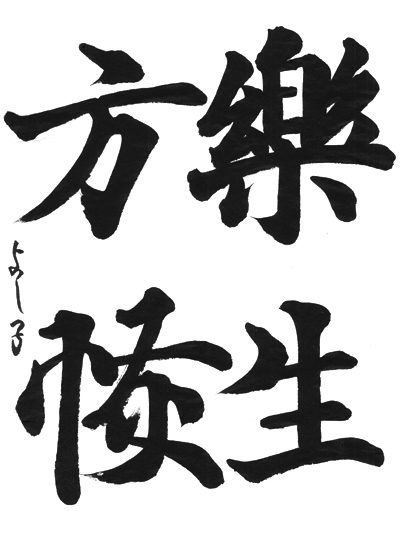 樂生
方恢
よし子